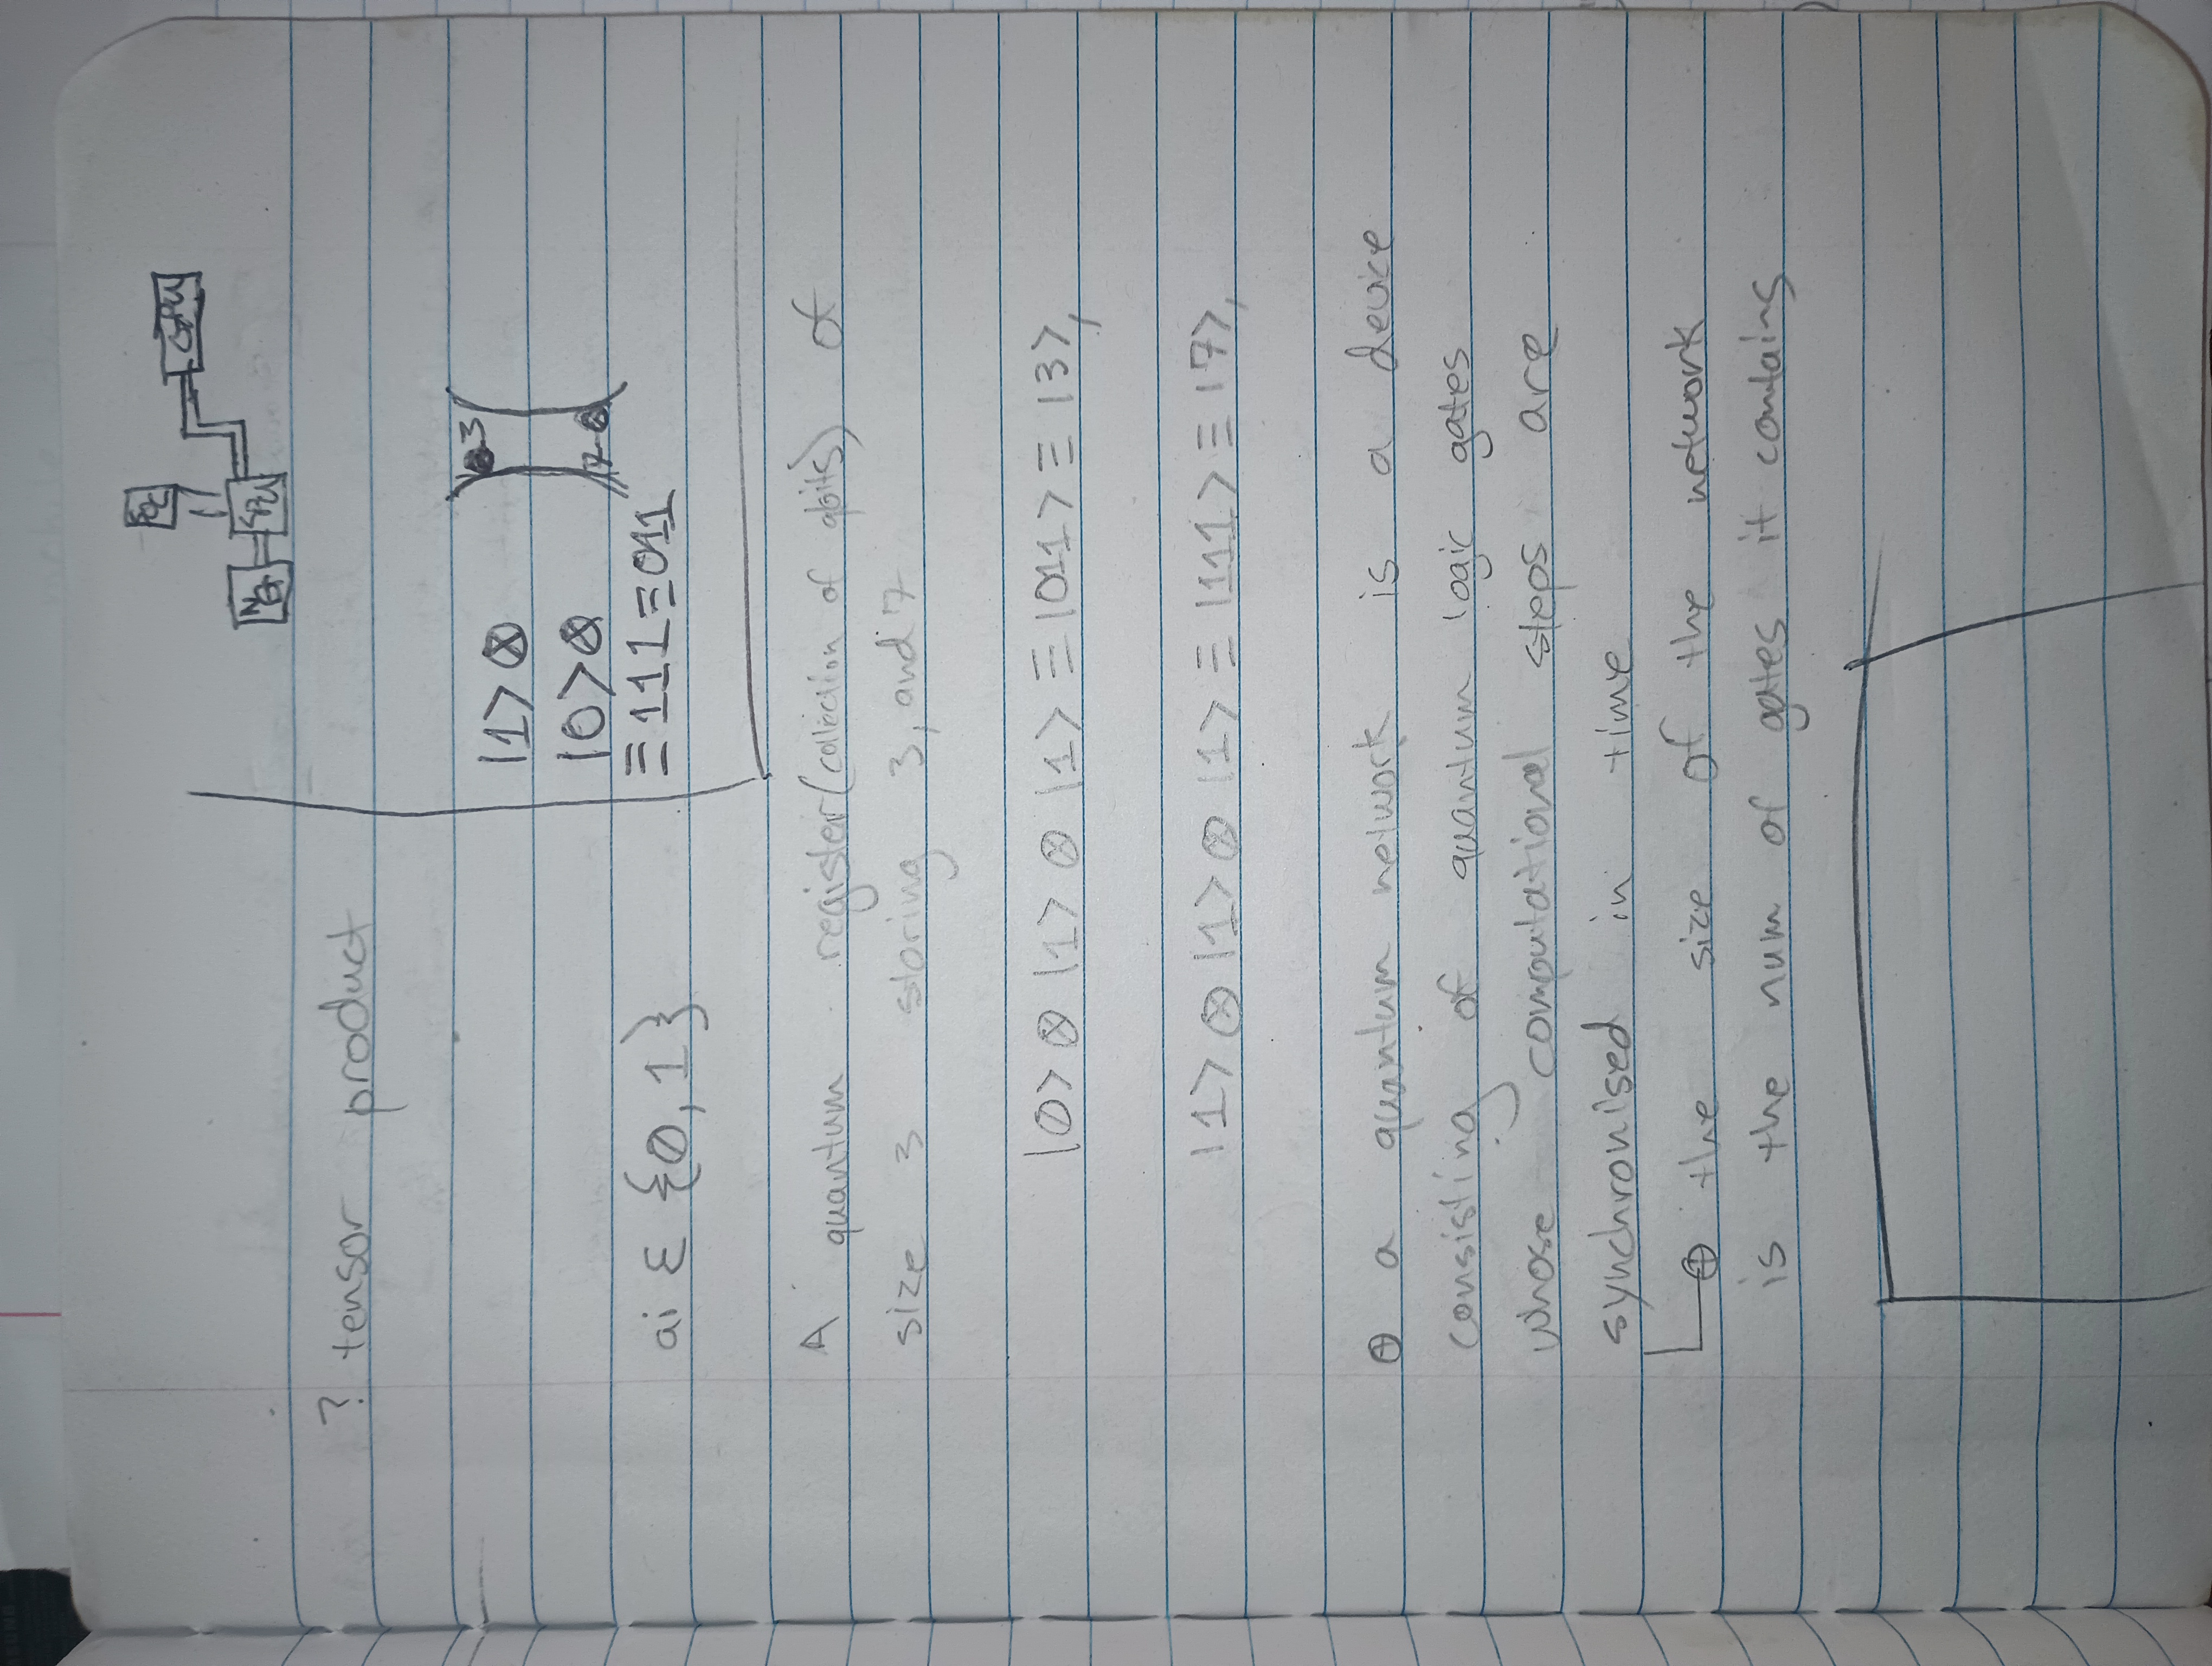 GPU
? tensor product
3
|1> ⊗
|0> ⊗
7
≡ 111 ≡ 011
ai ε {0, 1}
A quantum register (collection of qbits) of
size 3 storing 3, and 7
|0> ⊗ |1> ⊗ |1> ≡ |011> ≡ |3>,
|1> ⊗ |1> ⊗ |1> ≡ |111> ≡ |7>,
⊕ a quantum network is a device
consisting of quantum logic gates
whose computational steps are
synchronised in time
⊕ the size of the network
is the num of gates it contains